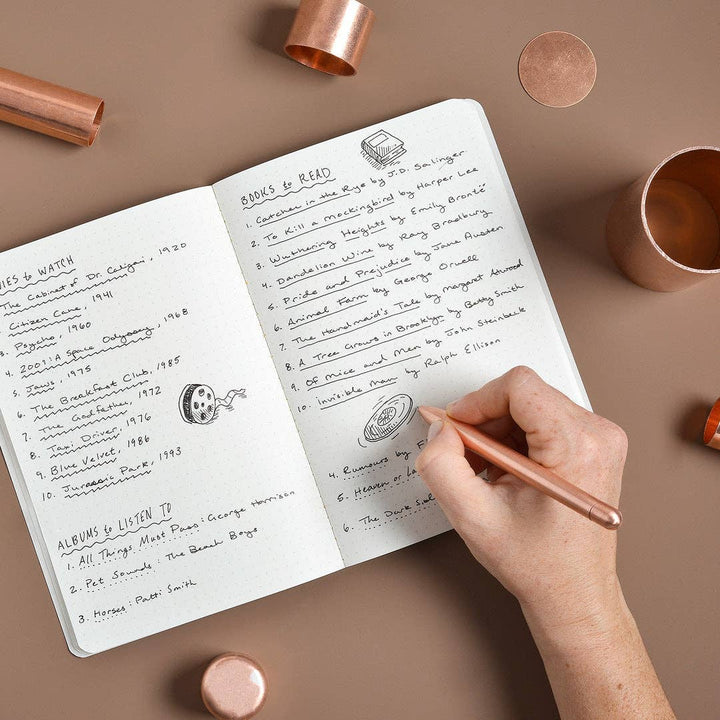 VIES to WATCH
The Cabinet of Dr. Caligari, 1920
Citizen Cane, 1941
3. Psycho, 1960
4. 2001: A Space Odyssey, 1968
5. Jaws, 1975
6. The Breakfast Club, 1985
7. The Godfather, 1972
8. Taxi Driver, 1976
9. Blue Velvet, 1986
10. Jurassic Park, 1993
ALBUMS to LISTEN TO
1. All Things Must Pass: George Harrison
2. Pet Sounds: The Beach Boys
3. Horses: Patti Smith
BOOKS to READ
1. Catcher in the Rye by J.D. Salinger
2. To Kill a Mockingbird by Harper Lee
3. Wuthering Heights by Emily Brontë
4. Dandelion Wine by Ray Bradbury
5. Pride and Prejudice by Jane Austen
6. Animal Farm by George Orwell
7. The Handmaid's Tale by Margaret Atwood
8. A Tree Grows in Brooklyn by Betty Smith
9. Of Mice and Men by John Steinbeck
10. Invisible Man by Ralph Ellison
4. Rumours by
5. Heaven or La
6. The Dark Sid